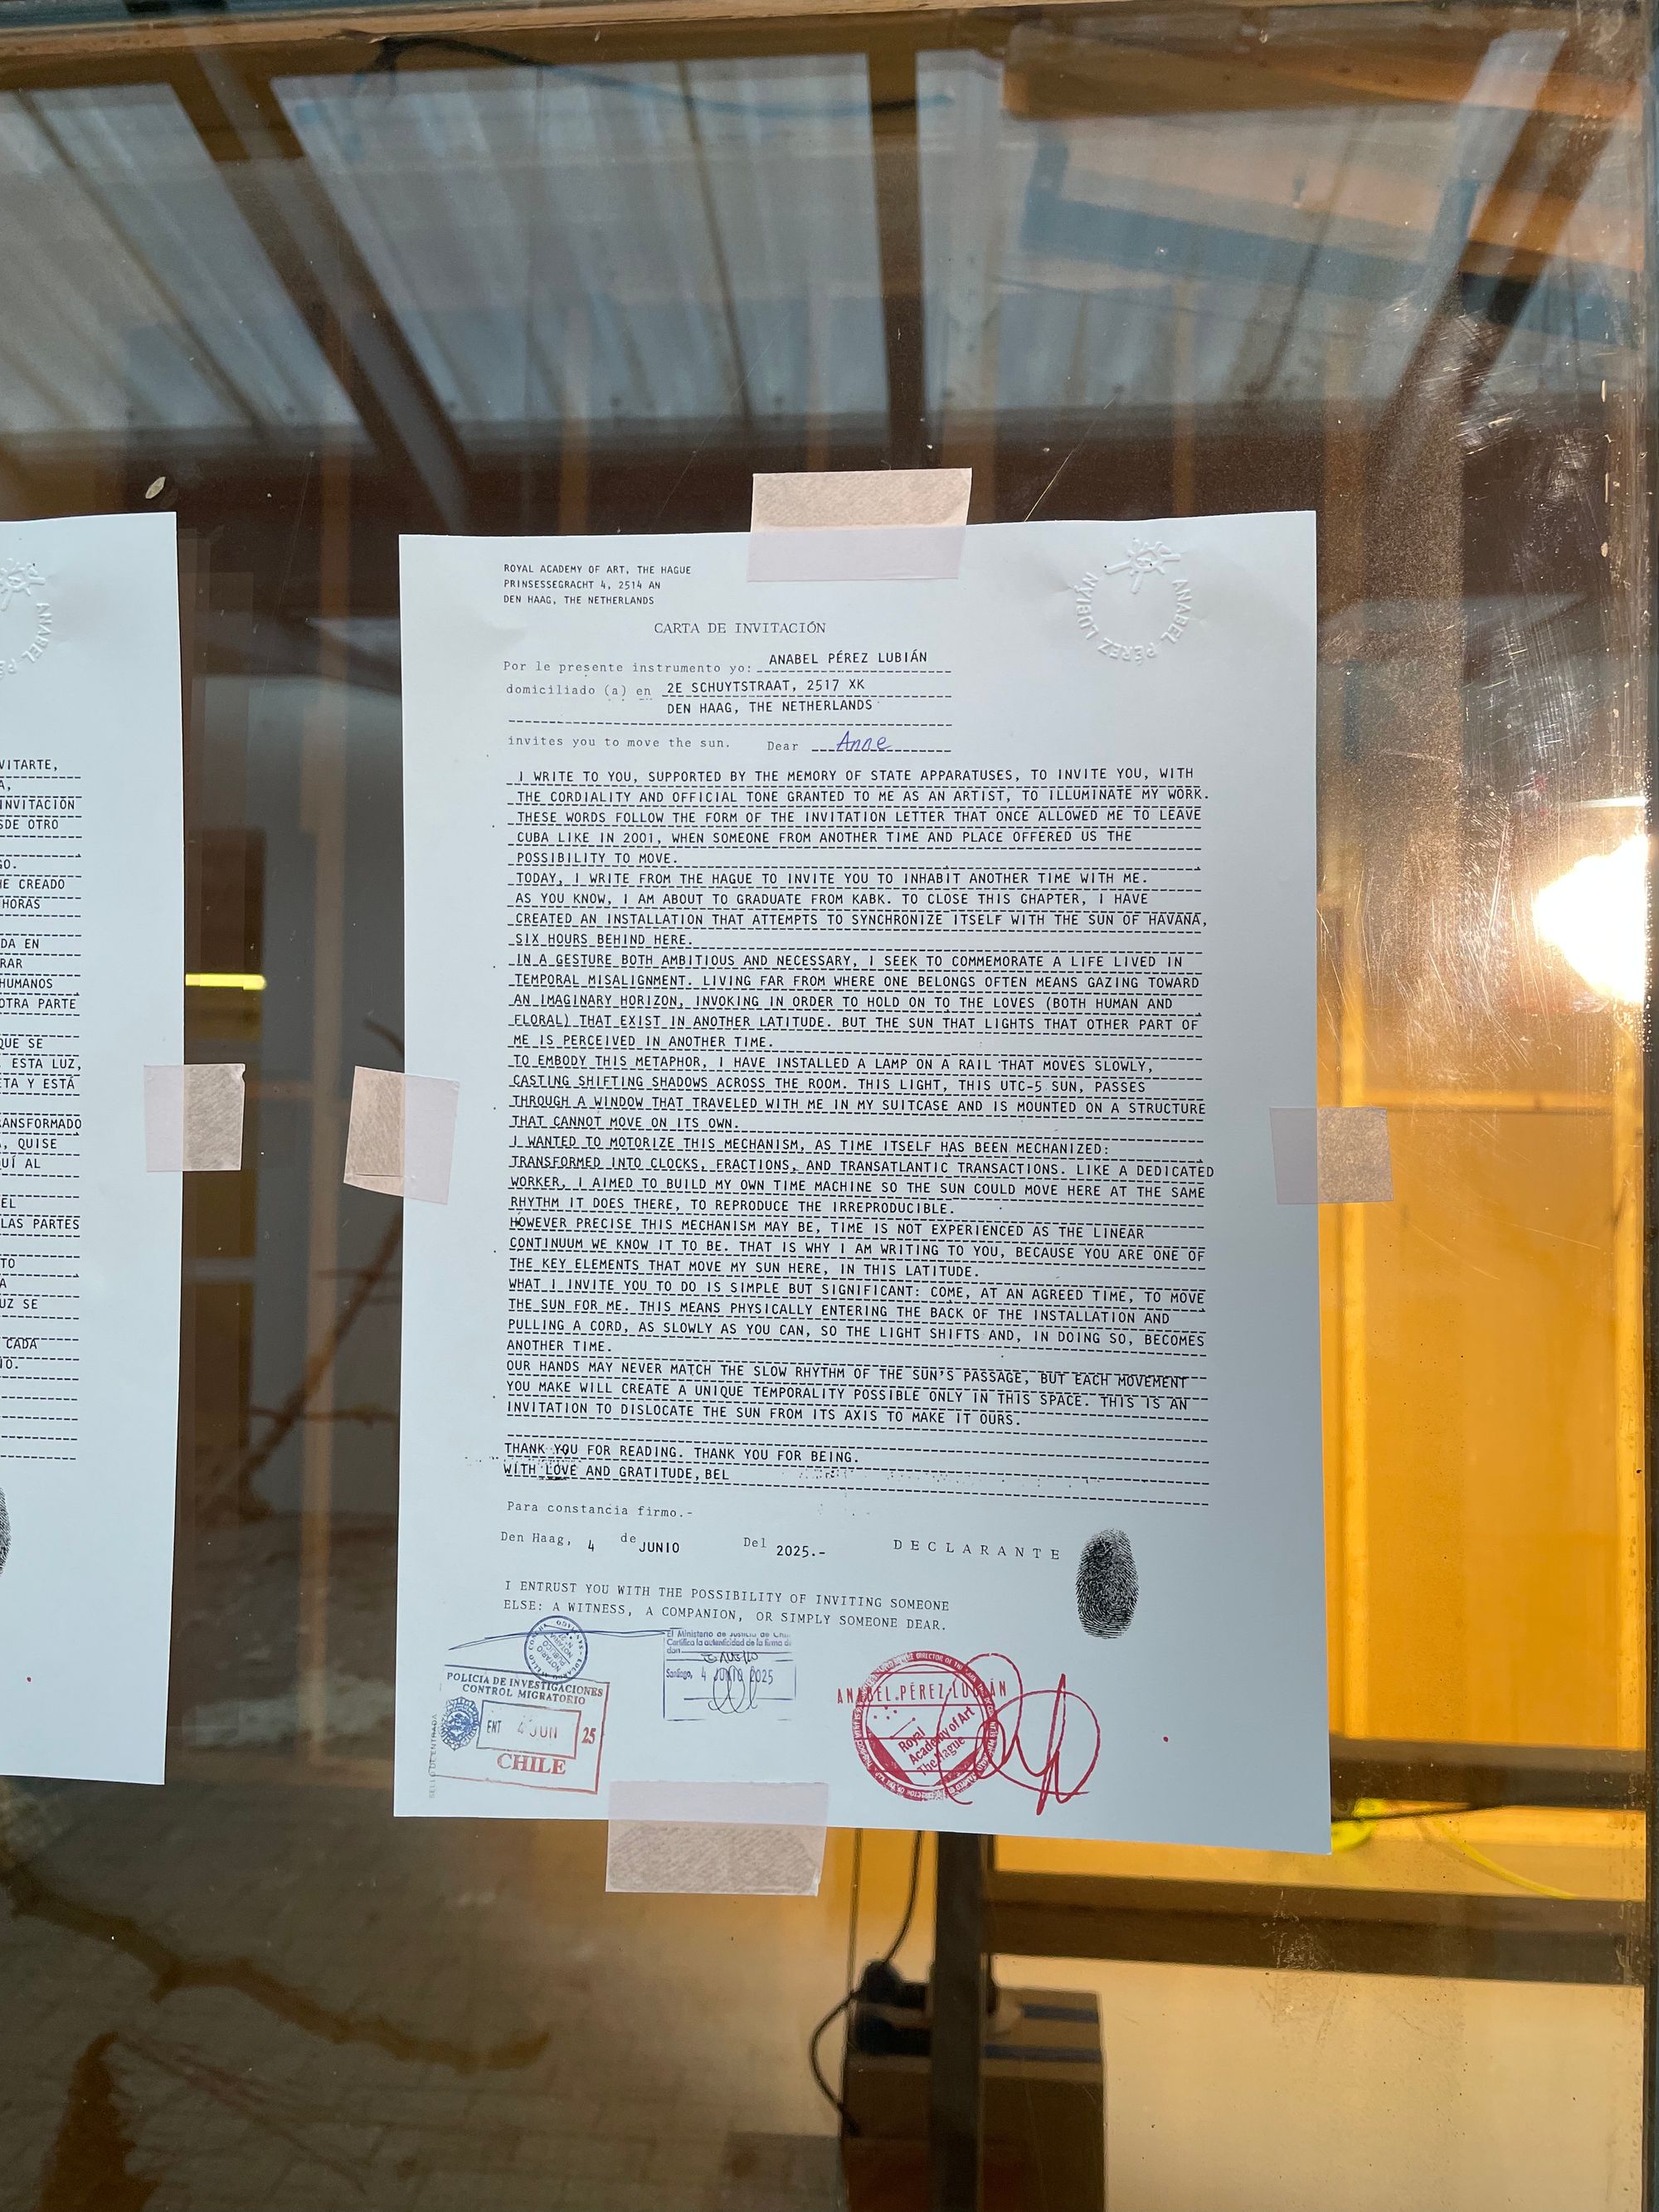 VITARTE,
A,
INVITACIÓN
SDE OTRO
GO.
HE CREADO
HORAS
DA EN
RAR
HUMANOS
OTRA PARTE
QUE SE
ESTA LUZ,
ETA Y ESTÁ
RANSFORMADO
, QUISE
QUÍ AL
EL
LAS PARTES
TO
A
UZ SE
CADA
NO.
ANABEL PÉ
ROYAL ACADEMY OF ART, THE HAGUE
PRINSESSEGRACHT 4, 2514 AN
DEN HAAG, THE NETHERLANDS
ANABEL PÉREZ LUBIÁN
CARTA DE INVITACIÓN
Por le presente instrumento yo: ANABEL PÉREZ LUBIÁN
domiciliado (a) en 2E SCHUYTSTRAAT, 2517 XK
DEN HAAG, THE NETHERLANDS
invites you to move the sun. Dear Anne
I WRITE TO YOU, SUPPORTED BY THE MEMORY OF STATE APPARATUSES, TO INVITE YOU, WITH
THE CORDIALITY AND OFFICIAL TONE GRANTED TO ME AS AN ARTIST, TO ILLUMINATE MY WORK.
THESE WORDS FOLLOW THE FORM OF THE INVITATION LETTER THAT ONCE ALLOWED ME TO LEAVE
CUBA LIKE IN 2001, WHEN SOMEONE FROM ANOTHER TIME AND PLACE OFFERED US THE
POSSIBILITY TO MOVE.
TODAY, I WRITE FROM THE HAGUE TO INVITE YOU TO INHABIT ANOTHER TIME WITH ME.
AS YOU KNOW, I AM ABOUT TO GRADUATE FROM KABK. TO CLOSE THIS GHAPTER, I HAVE
CREATED AN INSTALLATION THAT ATTEMPTS TO SYNCHRONIZE ITSELF WITH THE SUN OF HAVANA,
SIX HOURS BEHIND HERE.
IN A GESTURE BOTH AMBITIOUS AND NECESSARY, I SEEK TO COMMEMORATE A LIFE LIVED IN
TEMPORAL MISALIGNMENT. LIVING FAR FROM WHERE ONE BELONGS OFTEN MEANS GAZING TOWARD
AN IMAGINARY HORIZON, INVOKING IN ORDER TO HOLD ON TO THE LOVES (BOTH HUMAN AND
FLORAL) THAT EXIST IN ANOTHER LATITUDE. BUT THE SUN THAT LIGHTS THAT OTHER PART OF
ME IS PERCEIVED IN ANOTHER TIME.
TO EMBODY THIS METAPHOR, I HAVE INSTALLED A LAMP ON A RAIL THAT MOVES SLOWLY,
CASTING SHIFTING SHADOWS ACROSS THE ROOM. THIS LIGHT, THIS UTC-5 SUN, PASSES
THROUGH A WINDOW THAT TRAVELED WITH ME IN MY SUITCASE AND IS MOUNTED ON A STRUCTURE
THAT CANNOT MOVE ON ITS OWN.
I WANTED TO MOTORIZE THIS MECHANISM, AS TIME ITSELF HAS BEEN MECHANIZED:
TRANSFORMED INTO CLOCKS, FRACTIONS, AND TRANSATLANTIC TRANSACTIONS. LIKE A DEDICATED
WORKER, I AIMED TO BUILD MY OWN TIME MACHINE SO THE SUN COULD MOVE HERE AT THE SAME
RHYTHM IT DOES THERE, TO REPRODUCE THE IRREPRODUCIBLE.
HOWEVER PRECISE THIS MECHANISM MAY BE, TIME IS NOT EXPERIENCED AS THE LINEAR
CONTINUUM WE KNOW IT TO BE. THAT IS WHY I AM WRITING TO YOU, BECAUSE YOU ARE ONE OF
THE KEY ELEMENTS THAT MOVE MY SUN HERE, IN THIS LATITUDE.
WHAT I INVITE YOU TO DO IS SIMPLE BUT SIGNIFICANT: COME, AT AN AGREED TIME, TO MOVE
THE SUN FOR ME. THIS MEANS PHYSICALLY ENTERING THE BACK OF THE INSTALLATION AND
PULLING A CORD, AS SLOWLY AS YOU CAN, SO THE LIGHT SHIFTS AND, IN DOING SO, BECOMES
ANOTHER TIME.
OUR HANDS MAY NEVER MATCH THE SLOW RHYTHM OF THE SUN'S PASSAGE, BUT EACH MOVEMENT
YOU MAKE WILL CREATE A UNIQUE TEMPORALITY POSSIBLE ONLY IN THIS SPACE. THIS IS AN
INVITATION TO DISLOCATE THE SUN FROM ITS AXIS TO MAKE IT OURS.
THANK YOU FOR READING. THANK YOU FOR BEING.
WITH LOVE AND GRATITUDE, BEL
Para constancia firmo.-
Den Haag, 4 de JUNIO Del 2025.- DECLARANTE
I ENTRUST YOU WITH THE POSSIBILITY OF INVITING SOMEONE
ELSE: A WITNESS, A COMPANION, OR SIMPLY SOMEONE DEAR.
NOTARIO
PUBLICO
SANTIAGO
El Ministerio de Justicia de
Certifica la autenticidad de la firma de
don
Santiago, 4 JUNIO 2025
POLICIA DE INVESTIGACIONES
CONTROL MIGRATORIO
ENT 4 JUN 25
CHILE
SELLO DE ENTRADA
ANABEL PÉREZ LUBIÁN
Royal
Academy of Art
The Hague